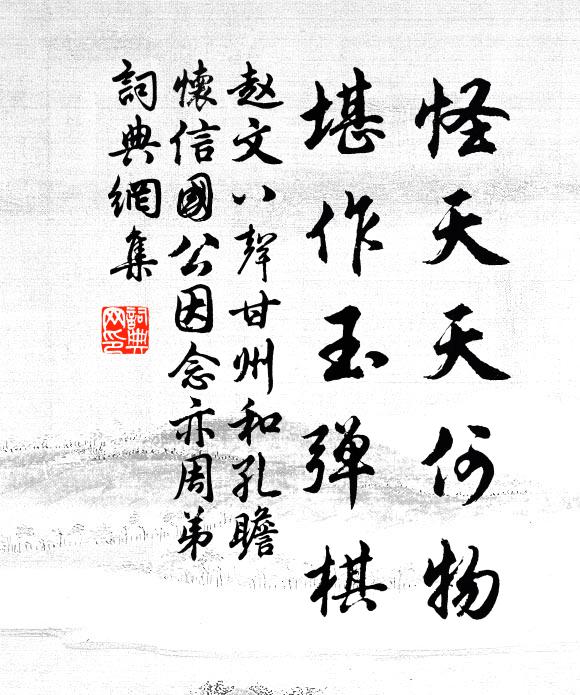 怪天天何物
堪作玉弹棋
赵文八聲甘州和孔瞻
懷信國公因念亦周弟
詞典網集
詞典网印